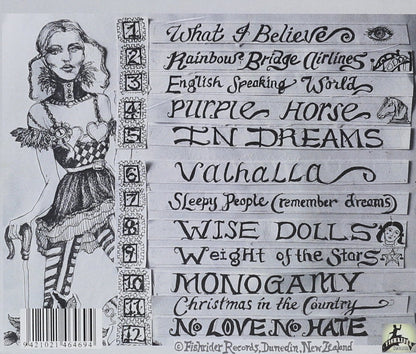 1 What I Believe
2 Rainbows? Bridge Airlines
3 English Speaking World
4 PURPLE HORSE
5 IN DREAMS
6 Valhalla
7 Sleepy People (remember dreams)
8 WISE DOLLS
9 Weight of the Stars
10 MONOGAMY
11 Christmas in the Country
12 NO LOVE. NO. HATE
9 421021 464694
© Fishrider Records, Dunedin, New Zealand